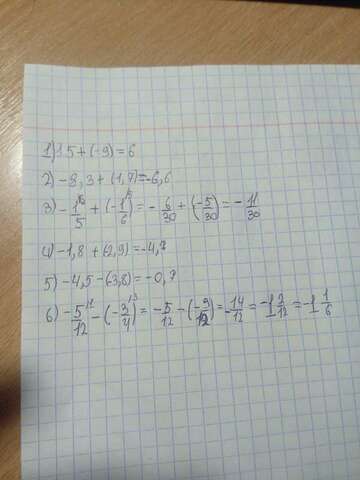 1) 15 + (-9) = 6
2) -8,3 + (1,7) = -6,6
3) -1/5 + (-1/6) = -6/30 + (-5/30) = -11/30
4) -1,8 + (2,9) = -4,7
5) -4,5 - (-3,8) = -0,7
6) -5/12 - (-3/4) = -5/12 - (-9/12) = -14/12 = -1 2/12 = -1 1/6